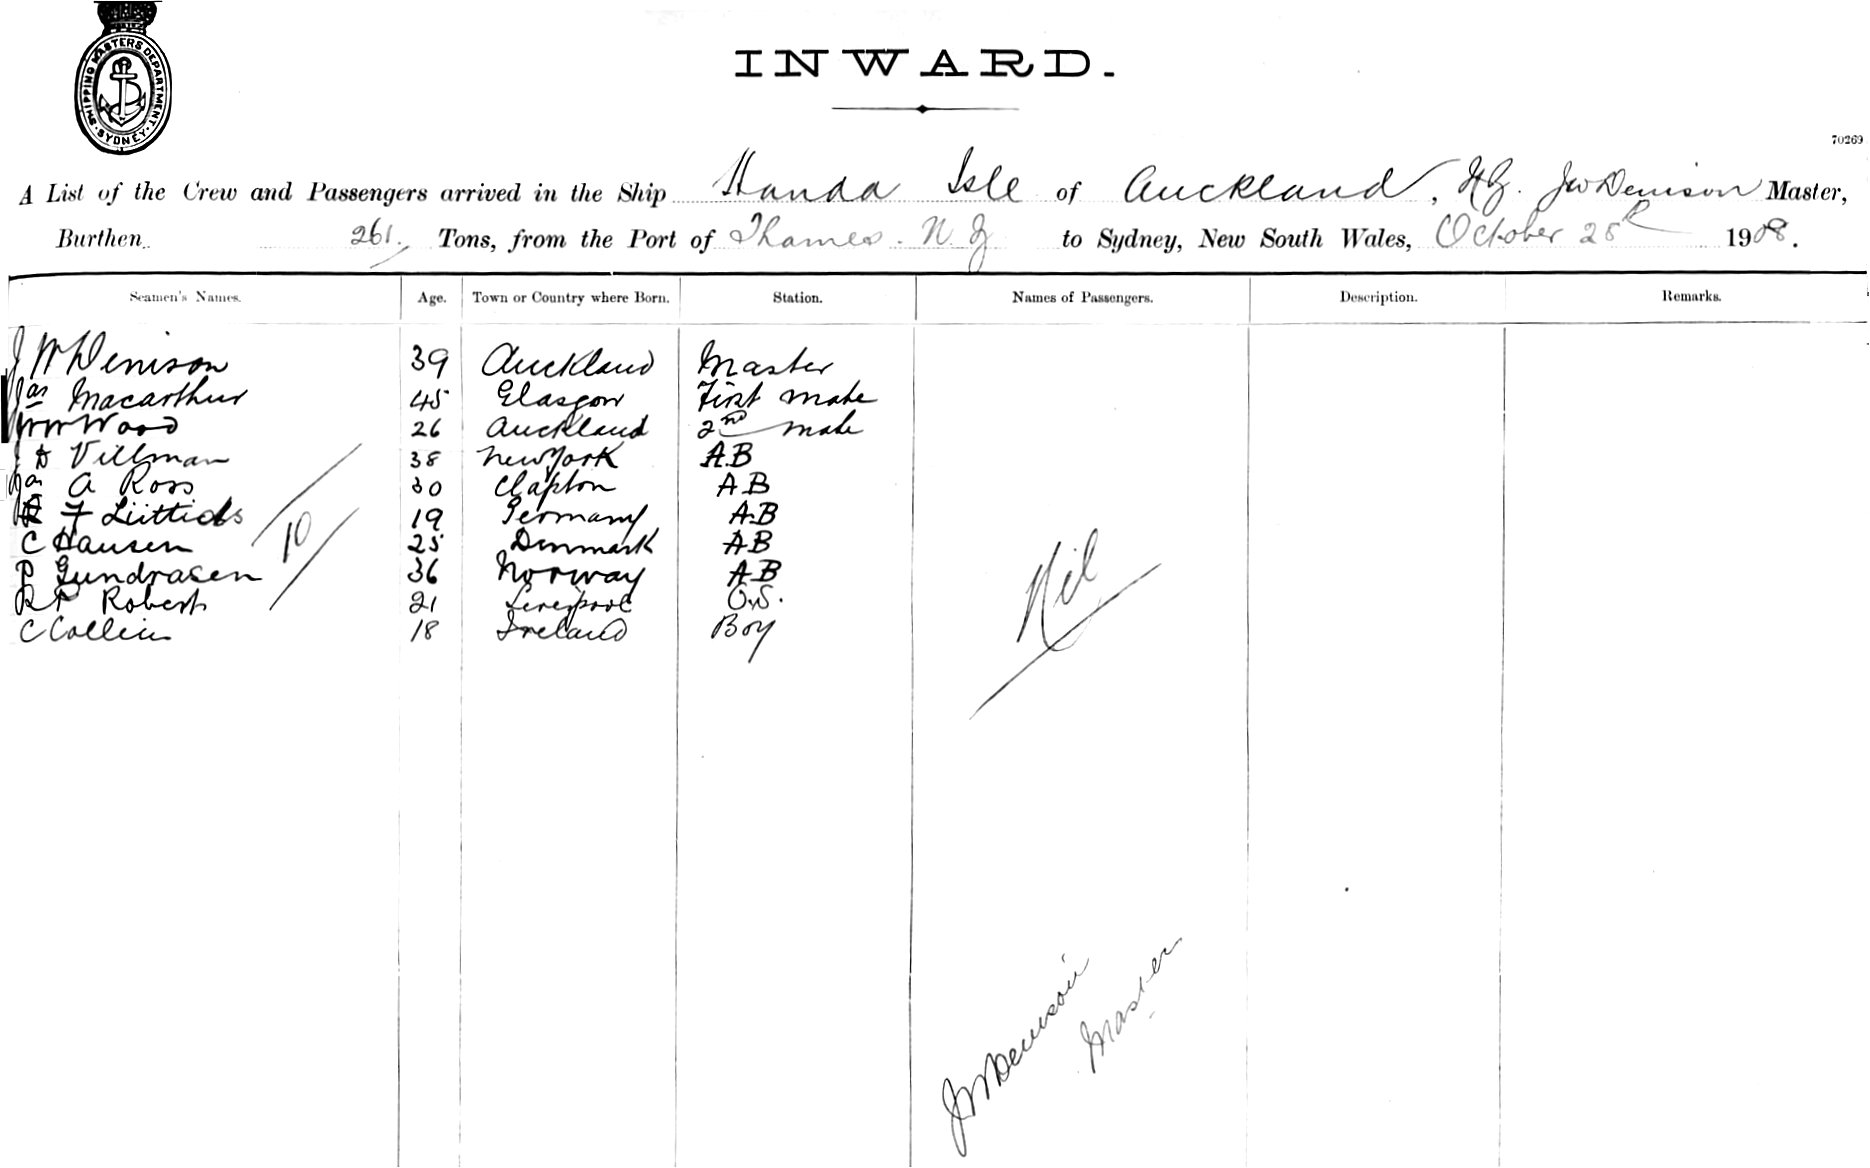 SHIPPING MASTERS DEPARTMENT
SYDNEY
INWARD.
70269
A List of the Crew and Passengers arrived in the Ship Handa Isle of Auckland, NZ. JW Denison Master,
Burthen 261 Tons, from the Port of Thames. N Z to Sydney, New South Wales, October 28 1908.
Seamen's Names. Age. Town or Country where Born. Station. Names of Passengers. Description. Remarks.
J W Denison 39 Auckland Master
Jas Macarthur 45 Glasgow First mate
Wood 26 Auckland 2nd mate
J Villman 38 New York AB
Jas A Ross 30 Clapton AB
F 19 Germany AB
C Hansen 25 Denmark AB
P Gundrasen 36 Norway AB
Robert 21 Liverpool O.S.
C Collins 18 Ireland Boy
10
Nil
JW Denison
Master